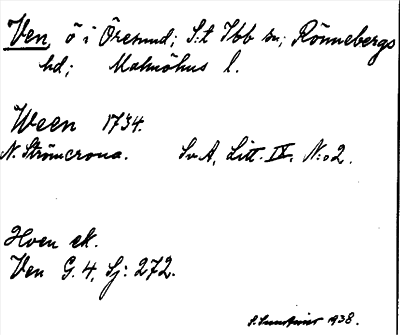 Ven, ö i Öresund; S:t Ibb sn; Rönnebergs
hd; Malmöhus l.
Ween 1734.
N. Strömcrona. SvA, Litt. IV, N:o 2.
Hven ek.
Ven G. 4, Sj: 272.
1938.